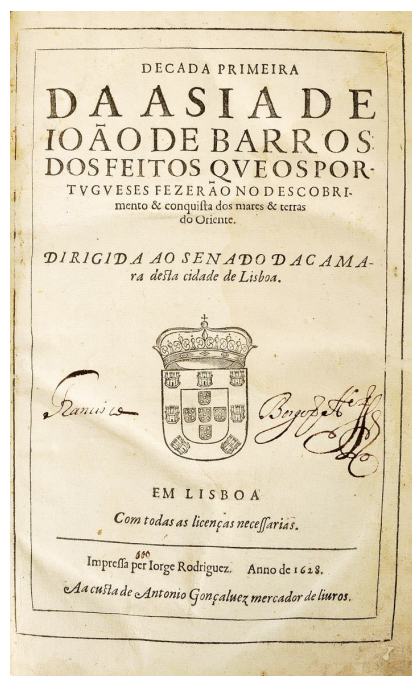 DECADA PRIMEIRA
DA ASIA DE
IOÃO DE BARROS:
DOS FEITOS QVE OS POR-
TVGVESES FEZERÃO NO DESCOBRI-
mento & conquiſta dos mares & terras
do Oriente.
DIRIGIDA AO SENADO DA CAMA-
ra deſta cidade de Lisboa.
Francisco
EM LISBOA
Com todas as licenças neceſſarias.
Impreſſa per Iorge Rodriguez. Anno de 1628.
Aa cuſta de Antonio Gonçaluez mercador de liuros.